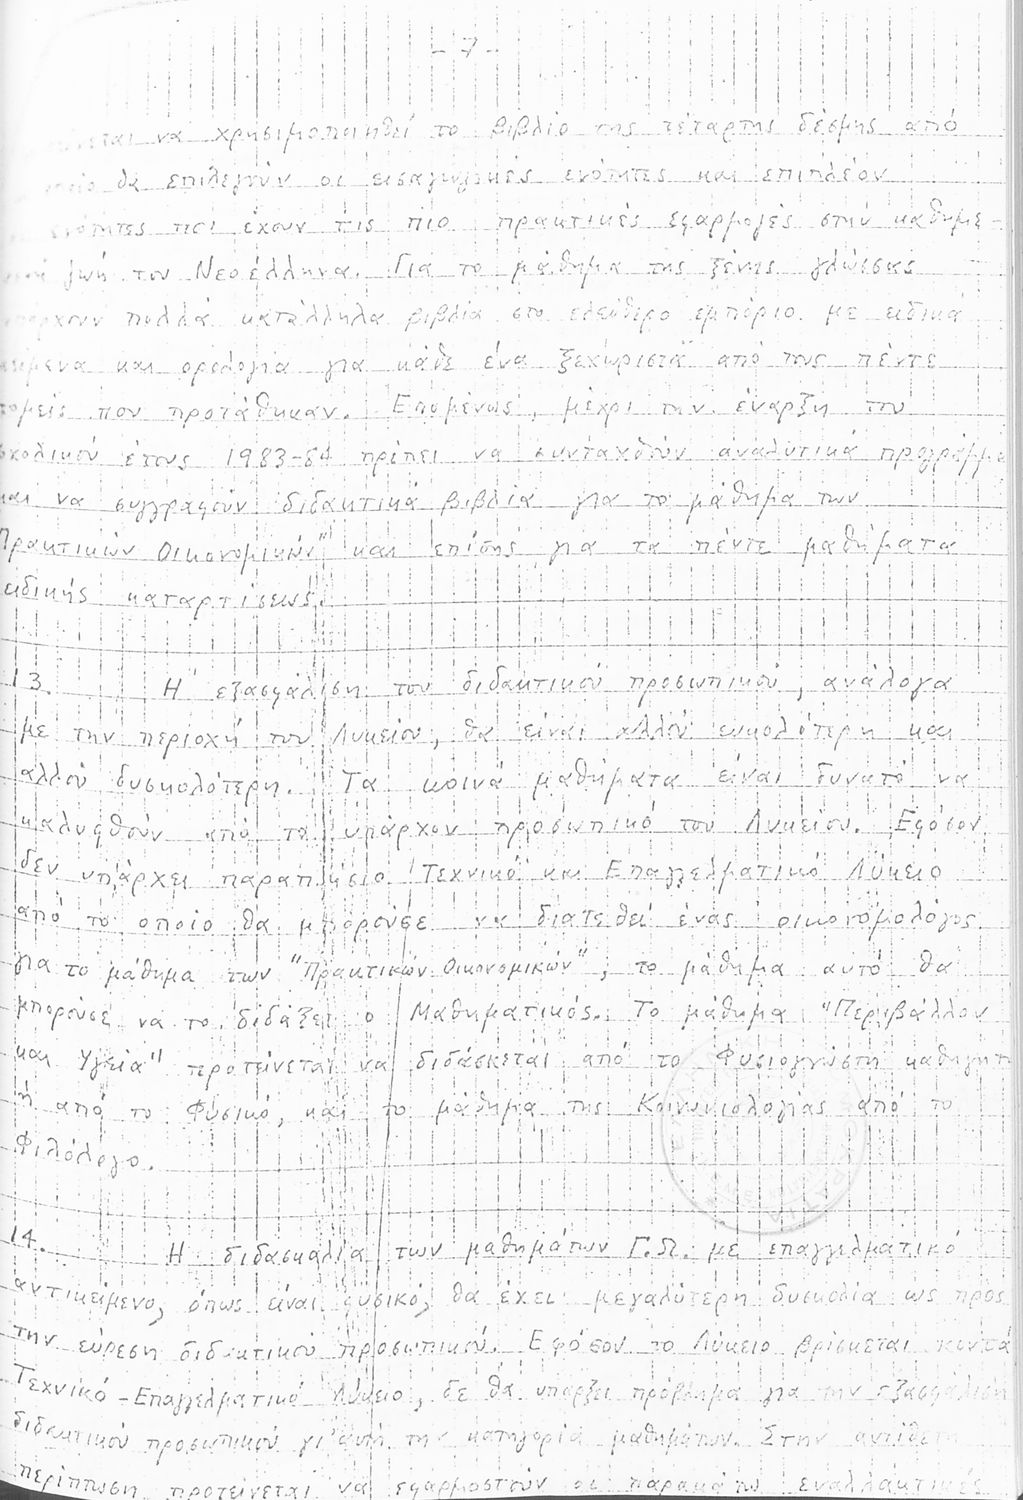 - 7 -
να χρησιμοποιηθεί το βιβλίο της τέταρτης δέσμης από
θα επιλεγούν οι εισαγωγικές ενότητες και επιπλέον
ενότητες που έχουν τις πιο πρακτικές εφαρμογές στην καθημε-
ζωή του Νεοέλληνα. Για το μάθημα της ξένης γλώσσας
υπάρχουν πολλά κατάλληλα βιβλία στο ελεύθερο εμπόριο με ειδικά
κείμενα και ορολογία για κάθε ένα ξεχωριστά από τους πέντε
τομείς που προτάθηκαν. Επομένως, μέχρι την έναρξη του
σχολικού έτους 1983-84 πρέπει να συνταχθούν αναλυτικά προγράμμα
και να συγγραφούν διδακτικά βιβλία για το μάθημα των
Πρακτικών Οικονομικών" και επίσης για τα πέντε μαθήματα
ειδικής καταρτίσεως.
13. Η εξασφάλιση του διδακτικού προσωπικού, ανάλογα
με την περιοχή του Λυκείου, θα είναι αλλού ευκολότερη και
αλλού δυσκολότερη. Τα κοινά μαθήματα είναι δυνατό να
καλυφθούν από το υπάρχον προσωπικό του Λυκείου. Εφόσον
δεν υπάρχει παραπλήσιο Τεχνικό και Επαγγελματικό Λύκειο
από το οποίο θα μπορούσε να διατεθεί ένας οικονομολόγος
για το μάθημα των "Πρακτικών Οικονομικών", το μάθημα αυτό θα
μπορούσε να το διδάξει ο Μαθηματικός. Το μάθημα "Περιβάλλον
και Υγεία" προτείνεται να διδάσκεται από το Φυσιογνώστη καθηγητ
ή από το Φυσικό, και το μάθημα της Κοινωνιολογίας από το
Φιλόλογο.
14. Η διδασκαλία των μαθημάτων Γ.Π. με επαγγελματικό
αντικείμενο, όπως είναι φυσικό, θα έχει μεγαλύτερη δυσκολία ως προς
την εύρεση διδακτικού προσωπικού. Εφόσον το Λύκειο βρίσκεται κοντά
Τεχνικό-Επαγγελματικό Λύκειο, δε θα υπάρξει πρόβλημα για την εξασφάλιση
διδακτικού προσωπικού γι'αυτή την κατηγορία μαθημάτων. Στην αντίθετη
περίπτωση προτείνεται να εφαρμοστούν οι παρακάτω εναλλακτικές